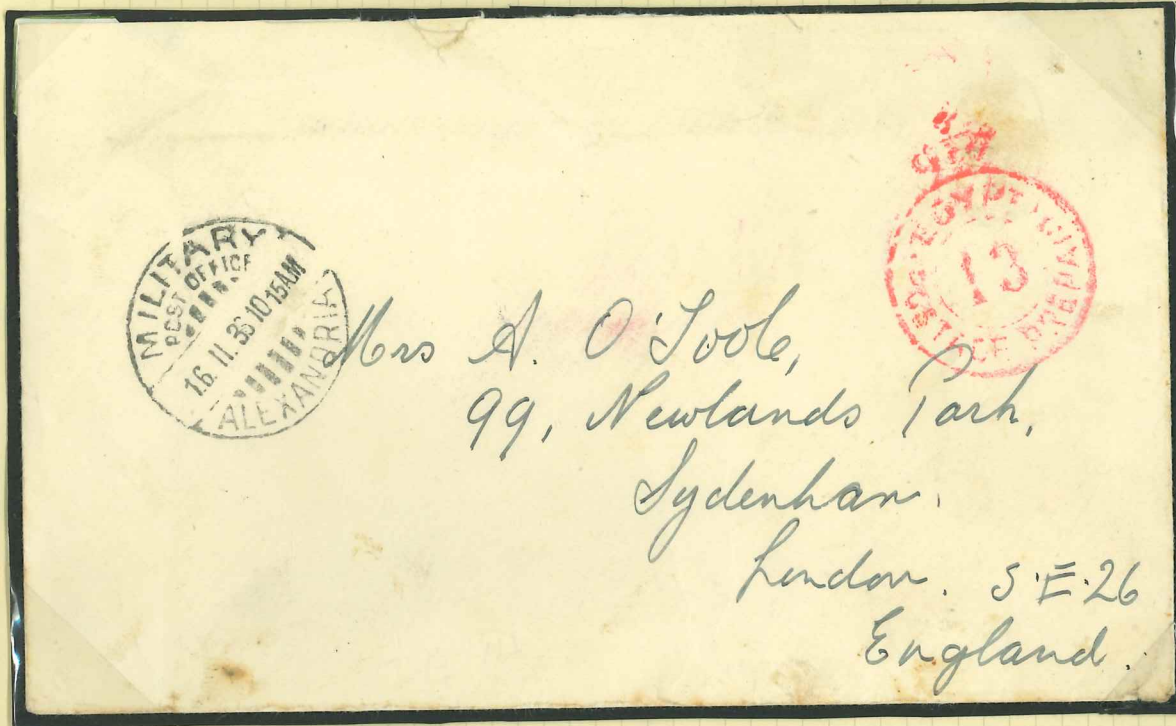 MILITARY
POST OFFICE
16.11.36 10-15AM
ALEXANDRIA
EGYPT
13
POSTAGE PREPAID
Mrs A. O'Toole,
99, Newlands Park,
Sydenham.
London. S.E.26
England.